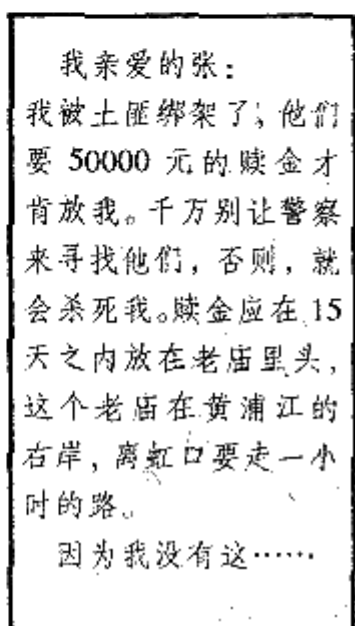 我亲爱的张：
我被土匪绑架了，他们
要 50000 元的赎金才
肯放我。千万别让警察
来寻找他们，否则，就
会杀死我。赎金应在 15
天之内放在老庙里头，
这个老庙在黄浦江的
右岸，离虹口要走一小
时的路。
因为我没有这……